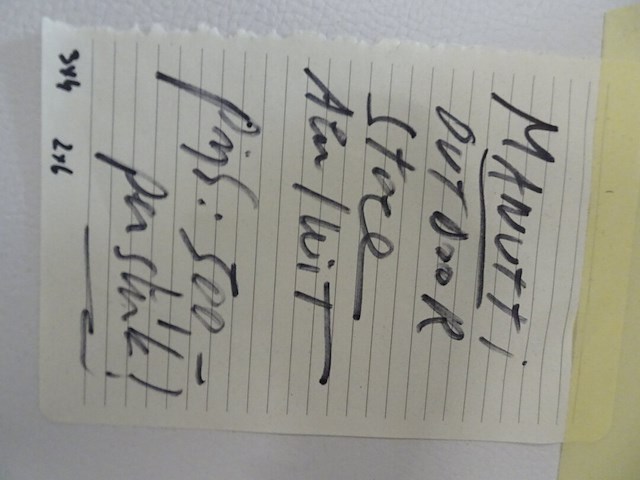 MANUTTi
OUTDOOR
Stoel
Alu/WiT
prijs: 500-
per stuk!
2x6